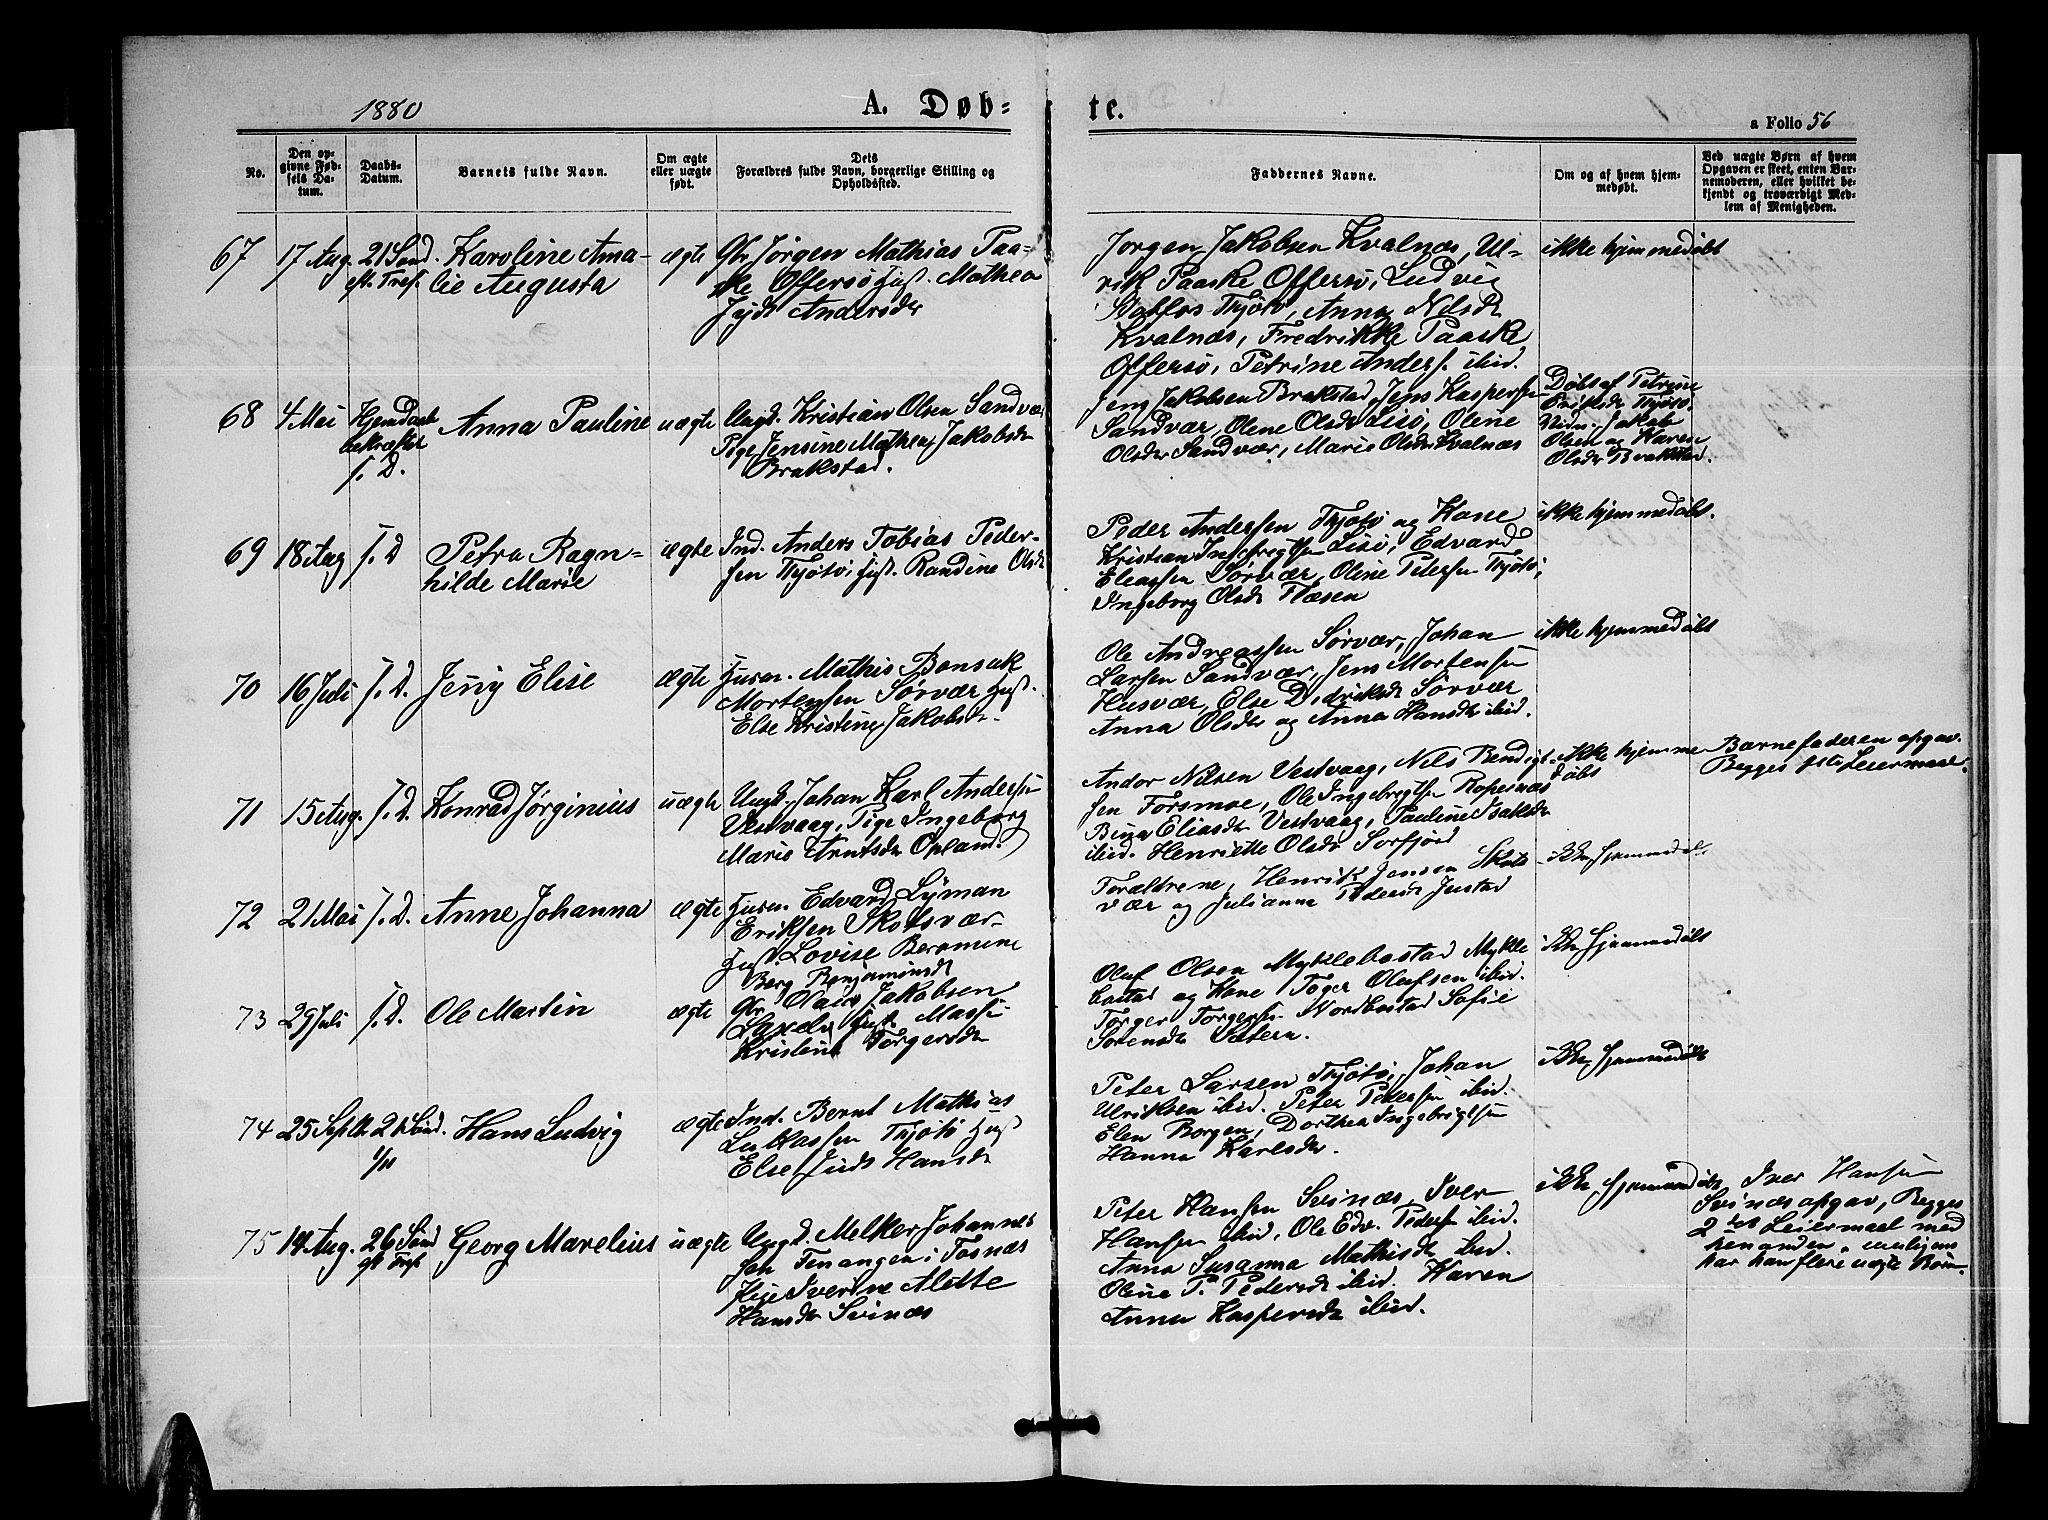 1880
A. Døb=
te.
a Folio 56
No.
Den op-
givne Fød-
sels Da-
tum.
Daabs-
Datum.
Barnets fulde Navn.
Om ægte
eller uægte
født.
Dets
Forældres fulde Navn, borgerlige Stilling og
Opholdssted.
Faddernes Navne.
Om og af hvem hjem-
medøbt.
Ved uægte Børn af hvem
Opgaven er skeet, enten Bar-
nemoderen, eller hvilket be-
kjendt og troværdigt Med-
lem af Menigheden.
67
17 Aug.
21 Sønd.
eft. Tref.
Karoline Ama-
lie Augusta
ægte
Gbr Jørgen Mathias Paa-
ske Offersø Hust. Mathea
Andersdr
Jørgen Jakobsen Kvalnæs, Ul-
rik Paaske Offersø, Ludvig
Thjøtø, Anna Nilsdr
Kvalnæs, Fredrikke Paaske
Offersø, Petrine Anders. ibid.
ikke hjemmedøbt
68
4 Mai
Hjemdaab
bekræftet
s. D.
Anna Pauline
uægte
Ungk. Kristian Olsen Sandvær
Pige Jensine Mathea Jakobsdr
Brakstad.
Jens Jakobsen Brakstad, Jens Kaspersen
Sandvær, Olene Olsdr Lisø, Oline
Olsdr Sandvær, Marie Olsdr Kvalnæs
Døbt af Petrine
Eriksdr Thjøtø,
Vidn. Jakob
Olsen og Karen
Olsdr Brakstad.
69
18 Aug
s. D
Petra Ragn-
hilde Marie
ægte
Ind. Anders Tobias Peder-
sen Thjøtø, Hust. Randine Olsdr
Peder Andersen Thjøtø og Kone
Kristian Ingebregtsen Lisø, Edvard
Eliassen Sørvær, Oline Petersen Thjøtø,
Ingeborg Olsdr Flæsen
ikke hjemmedøbt.
70
16 Juli
s. D.
Jenny Elise
ægte
Husm. Mathis Bonsak
Mortensen Sørvær Hust.
Else Kristine Jakobsdr
Ole Andreassen Sørvær, Johan
Larsen Sandvær, Jens Mortensen
Husvær, Else Didriksdr Sørvær
Anna Olsdr og Anna Hansdr ibid.
ikke hjemmedøbt
71
15 Aug.
s. D.
Konrad Jørginius
uægte
Ungk. Johan Karl Andersen
Vestvaag, Pige Ingeborg
Marie Arntsdr Opland.
Andor Nilsen Vestvaag, Nils Bendigt-
sen Forsmoe, Ole Ingebregtsen
Eliasdr Vestvaag, Pauline Isaksdr
ibid. Henriette Olsdr Sørfjord
ikke hjemme
døbt
Barnefaderen opgav.
Begges 1ste Leiermaal.
72
21 Mai
s. D.
Anne Johanna
ægte
Husm. Edvard Lyman
Eriksen Skotsvær
Hust. Lovise
Berg Benjaminsdr
Forældrene, Henrik Jensen Skots
vær og Julianna Pedersdr
ikke hjemmedøbt
73
29 Juli
s. D.
Ole Martin
ægte
Gbr. Jakobsen
Hust. Massi
Kristine Torgersdr
Oluf Olsen Myklebostad Mykle
bostad og Kone Olufsen ibid.
Torger Torgersen Nordbostad Sofie
Sørensdr
ikke hjemmedøbt
74
25 Septb.
24 Sønd.
1/11
Hans Ludvig
ægte
Ind. Bernt Mathias
Lukkassen Thjøtø Hust
Else Judit Hansdr
Peter Larsen Thjøtø, Johan
Ulriksen ibid. Peter Petersen ibid.
Elen Borgen, Dorthea Ingebrigtsen
Hanna Karlsdr.
ikke hjemmedøbt
75
14 Aug.
26 Sønd
eft Tref.
Georg Marelius
uægte
Ungk. Melker Johannes
sen i Fosnæs
Pige Iverine Alette
Hansdr Svinæs
Peter Hansen Svinæs, Iver
Hansen ibid, Ole Edv. Pedersen ibid.
Anna Susanna Mathisdr ibid.
Oline P. Pedersdr ibid. Karen
Anna Kaspersdr ibid.
ikke hjemmedøbt
Iver Hansen
Svinæs opgav, Begges
2det Leiermaal med
hinanden,
har han flere uægte Børn.